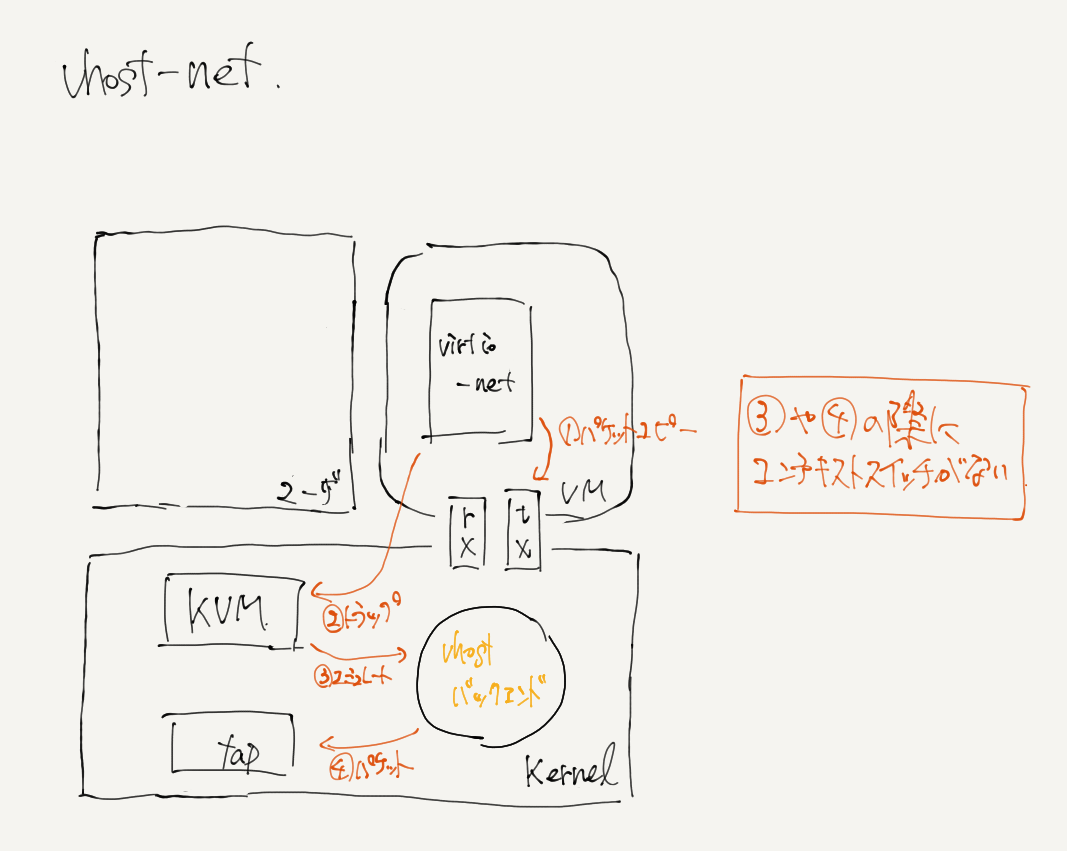 vhost-net.
virtio
-net
①パケットコピー
ユーザ
VM
rx
tx
③や④の際に
コンテキストスイッチがない
KVM
②トラップ
③エミュレート
vhost
バックエンド
tap
④パケット
Kernel